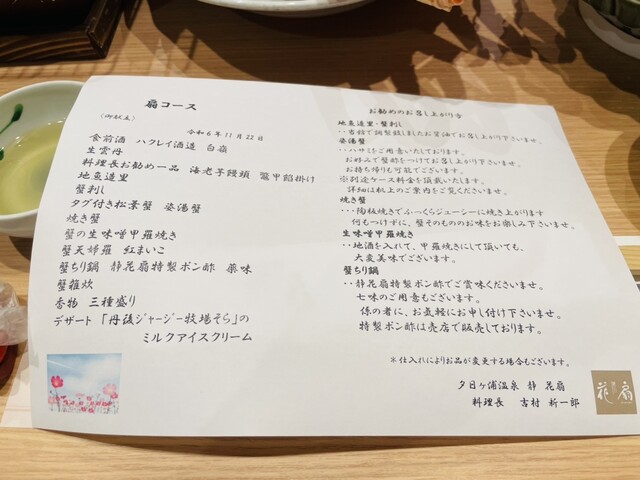 扇コース
(御献立)
令和6年11月22日
食前酒 ハクレイ酒造 白嶺
生雲丹
料理長お勧め一品 海老芋饅頭 鼈甲餡掛け
地魚造里
蟹刺し
タグ付き松葉蟹 姿湯蟹
焼き蟹
蟹の生味噌甲羅焼き
蟹天婦羅 紅まいこ
蟹ちり鍋 静花扇特製ポン酢 薬味
蟹雑炊
香物 三種盛り
デザート 「丹後ジャージー牧場そら」の
ミルクアイスクリーム
お勧めのお召し上がり方
地魚造里・蟹刺し
・・当館で調製致しましたお醤油でお召し上がり下さいませ。
姿湯蟹
・・ハサミをご用意いたしております。
お好みで蟹酢をつけてお召し上がり下さいませ。
お持ち帰りも可能でございます。
※別途ケース料金を頂戴いたします。
詳細は机上のご案内をご覧くださいませ。
焼き蟹
・・・陶板焼きでふっくらジューシーに焼き上がります
何もつけずに、蟹そのもののお味をお楽しみ下さいませ。
生味噌甲羅焼き
・・地酒を入れて、甲羅焼きにして頂いても、
大変美味でございます。
蟹ちり鍋
・・静花扇特製ポン酢でご賞味くださいませ。
七味のご用意もございます。
係の者に、お気軽にお申し付け下さいませ。
特製ポン酢は売店で販売しております。
*仕入れによりお品が変更する場合もございます。
夕日ヶ浦温泉 静 花扇
料理長 吉村 新一郎
花扇